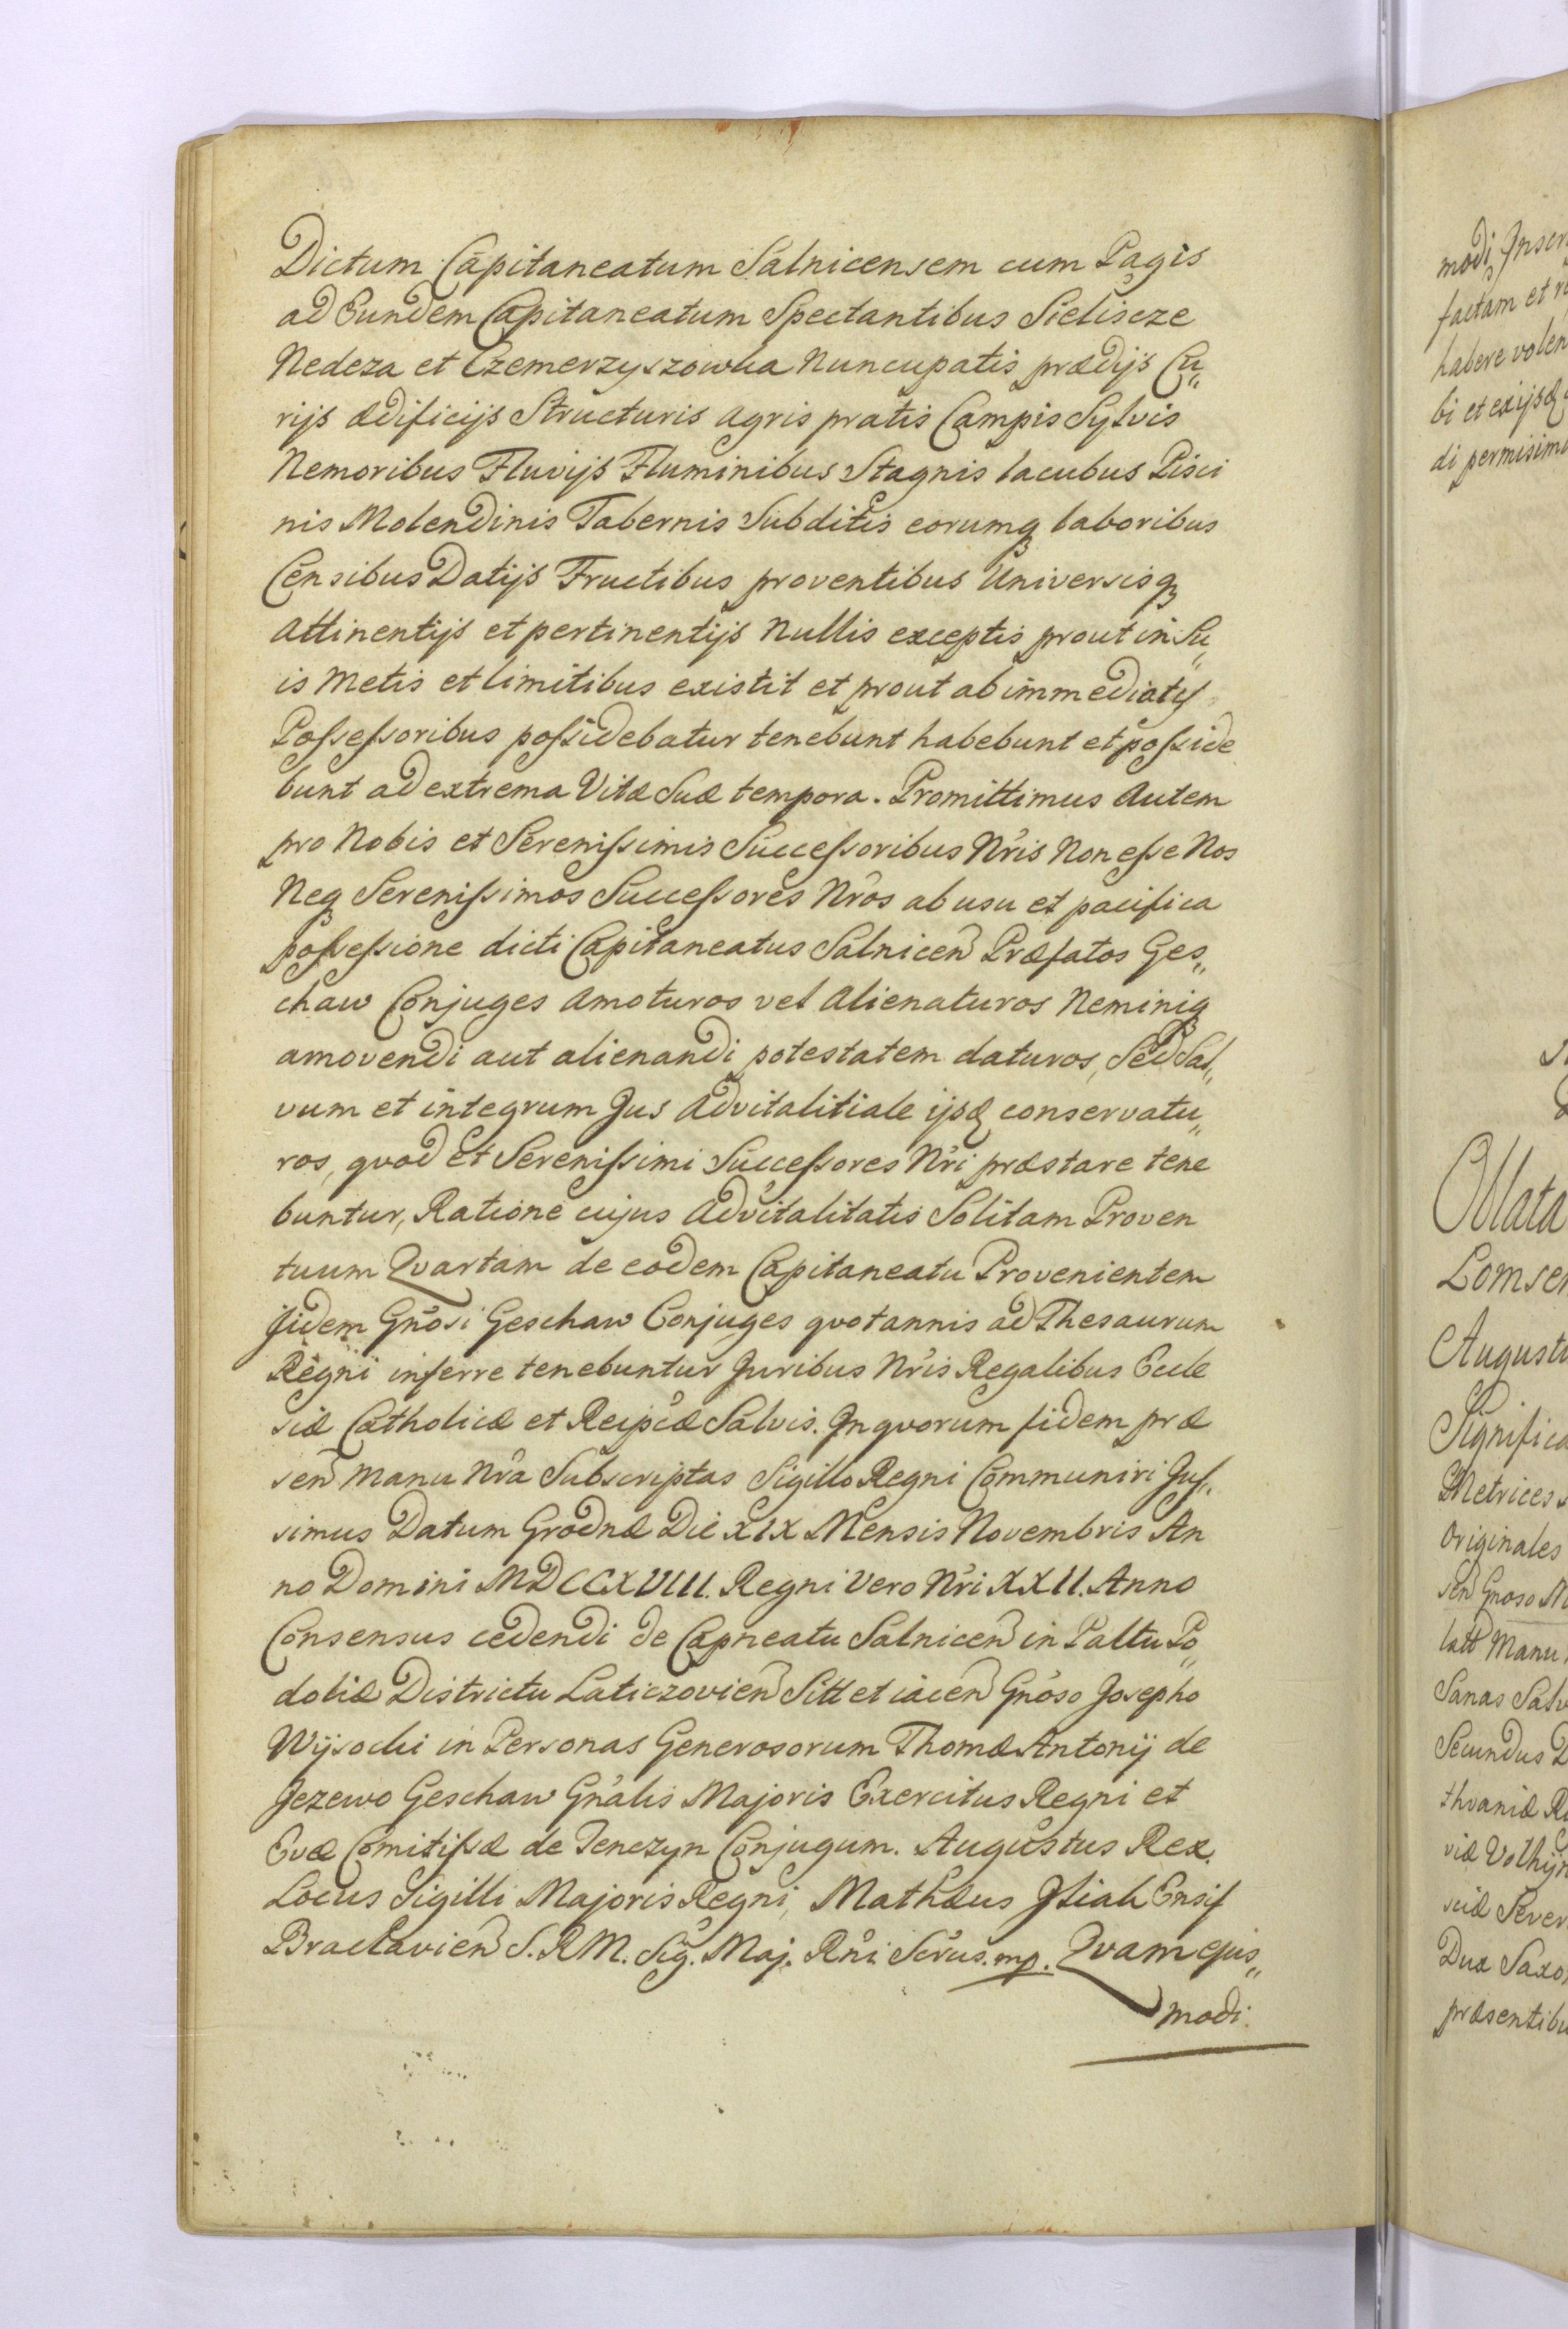 Dictum Capitaneatum Salnicensem cum Pagis
ad Eundem Capitaneatum Spectantibus Sieliscze
Nedeza et Czemerzyszowka Nuncupatis prædijs Cu„
rijs ædificijs Structuris agris pratis Campis Sylvis
Nemoribus Fluvijs Fluminibus Stagnis lacubus Pisci
nis Molendinis Tabernis Subditis eorumq laboribus
Censibus Datijs Fructibus proventibus Universisq
attinentijs et pertinentijs Nullis exceptis prout in Su„
is Metis et limitibus existit et prout ab immediatis
Possessoribus possidebatur tenebunt habebunt et posside
bunt ad extrema Vitæ Suæ tempora. Promittimus Autem
pro Nobis et Serenissimis Successoribus Nris Non esse Nos
Neq Serenissimos Successores Nros ab usu et pacifica
possessione dicti Capitaneatus Salnicen Præfatos Ges„
chaw Conjuges amoturos vel Alienaturos Neminiq
amovendi aut alienandi potestatem daturos, Sed Sal„
vum et integrum Jus Advitalitiale ijsd conservatu„
ros, quod et Serenissimi Successores Nri præstare tene
buntur, Ratione cujus Advitalitatis Solitam Proven
tuum Quartam de eodem Capitaneatu Provenientem
Jidem Gnosi Geschaw Conjuges quotannis ad Thesaurum
Regni inferre tenebuntur Juribus Nris Regalibus Eccle
siæ Catholicæ et Reipcæ Salvis. In quorum fidem præ
sen manu Nra Subscriptas Sigillo Regni Communiri Jus„
simus Datum Grodnæ Die XIX Mensis Novembris An
no Domini MDCCXVIII. Regni Vero Nri XXII. Anno
Consensus cedendi de Capneatu Salnicen in Pallu Po„
doliæ Districtu Laticzovien Sitt et iacen Gnoso Josepho
Wysocki in Personas Generosorum Thomæ Antonij de
Jezewo Geschaw Gnalis Majoris Exercitus Regni et
Evæ Comitissæ de Tenczyn Conjugum. Augustus Rex.
Locus Sigilli Majoris Regni, Mathæus Ensif
Braclavien S. R. M. Sig. Maj. Rni Scrius. mp. Quam ejus„
modi.
modi
factam et
habere volen
bi et exijsd
di permisimu
Oblata
Lomsen
Augusti
Significa
Metrices
Originales
sen Gnoso
latt Manu
Sanas Salv
Secundus D
thvaniæ
viæ Volhyn
sciæ Sever
Dux Saxo
præsentibu